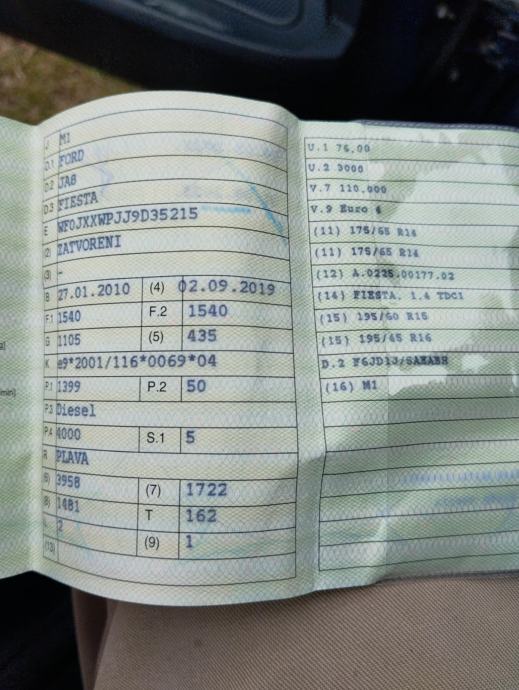 J M1
D.1 FORD
D.2 JA8
D.3 FIESTA
E WF0JXXWPJJ9D35215
(2) ZATVORENI
(3) -
B 27.01.2010 (4) 02.09.2019
F.1 1540 F.2 1540
G 1105 (5) 435
K e9*2001/116*0069*04
P.1 1399 P.2 50
P.3 Diesel
P.4 4000 S.1 5
R PLAVA
(6) 3958 (7) 1722
(8) 1481 T 162
L 2 (9) 1
(13)
U.1 76,00
U.2 3000
V.7 110,000
V.9 Euro 4
(11) 175/65 R14
(11) 175/65 R14
(12) A.0225.00177.02
(14) FIESTA, 1.4 TDCi
(15) 195/60 R15
(15) 195/45 R16
D.2
(16) M1
min]